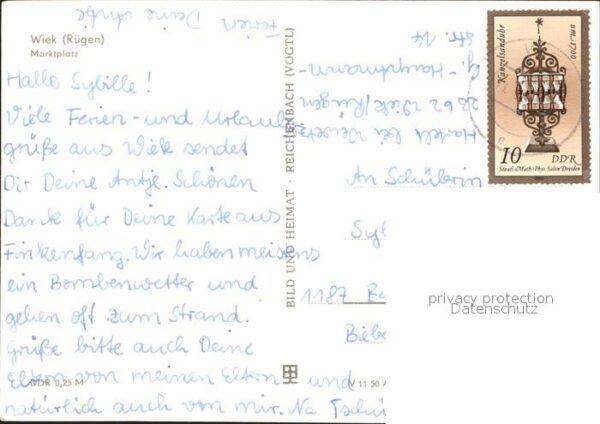 Wiek (Rügen)
Marktplatz
Hallo Sybille!
Viele Ferien- und Urlaubs-
grüße aus Wiek sendet
Dir Deine Antje. Schönen
Dank für Deine Karte aus
Finkenfang. Wir haben meistens
ein Bombenwetter und
gehen oft zum Strand.
Grüße bitte auch Deine
Eltern von meinen Eltern und
natürlich auch von mir. Na Tschü
Ferien Deine Antje
DDR 0,25 M
BILD UND HEIMAT · REICHENBACH (VOGTL)
V 11 50
bei
2362 Wiek/Rügen
G.-Hauptmann-
Str. 14
An Schülerin
Syb
1187 Be
Kanzelsanduhr
um 1700
10 DDR
Staatl. Math.-Phys. Salon Dresden
privacy protection
Datenschutz